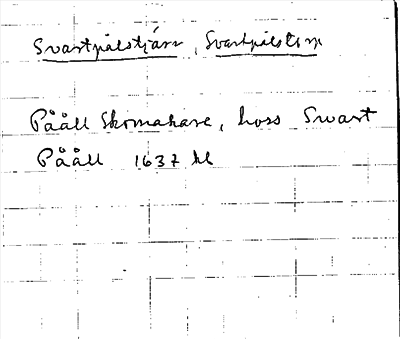 Svartpålstjärn, Svartpålstorp
Pååll Skomakare, hoss Swart
Pååll 1637 hl